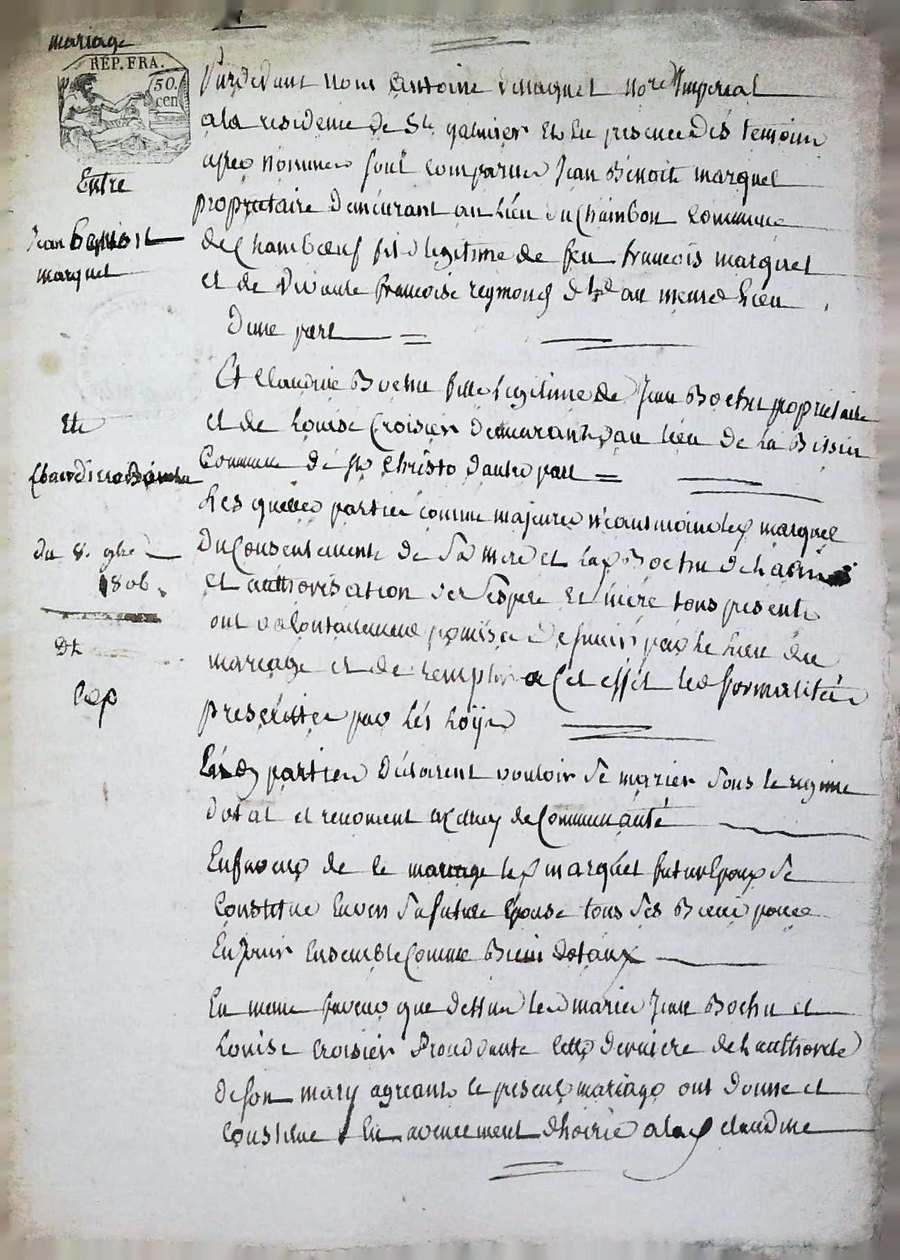 mariage
REP. FRA.
50.
cen
Entre
Jean benoit
marquet
Et
Claudine Bochu
du 8. 9bre
1806.
Dt
Exp
Pardevant nous Antoine nore Imperial
a la residence de St galmier et en presence des temoins
apres nommes fut comparu Jean Benoit marquet
propriétaire demeurant au Lieu du Chambon Commune
de Chambœuf fils légitime de feu francois marquet
et de francoise reymond au meme Lieu
dune part
Et Claudine Bochu fille legitime de Jean Bochu proprietaire
et de Louise Croisier demeurants au lieu de la
Commune de St Christo dautre part
Les quelles parties comme majeures neanmoins led marquet
du Consentement de sa mere et lad Bochu de
et authorisation de ses pere et mere tous presents
ont volontairement promis de sunir par le lien du
mariage et de remplir a Cet effet les formalités
prescrittes par les Loÿx
Lesd parties declarent vouloir se marier sous le regime
dotal et renoncent de Communauté
En faveur de ce mariage led marquet futur Epoux se
Constitue Envers sa future Epouse tous ses Biens pour
En jouir Ensemble Comme Biens dotaux
En meme faveur que dessus les maries Jean Bochu et
Louise Croisier Procedante cette derniere de Lauthorité
de son mary agreants le present mariage ont donné et
Constitué En avencement dhoirie a lad claudine